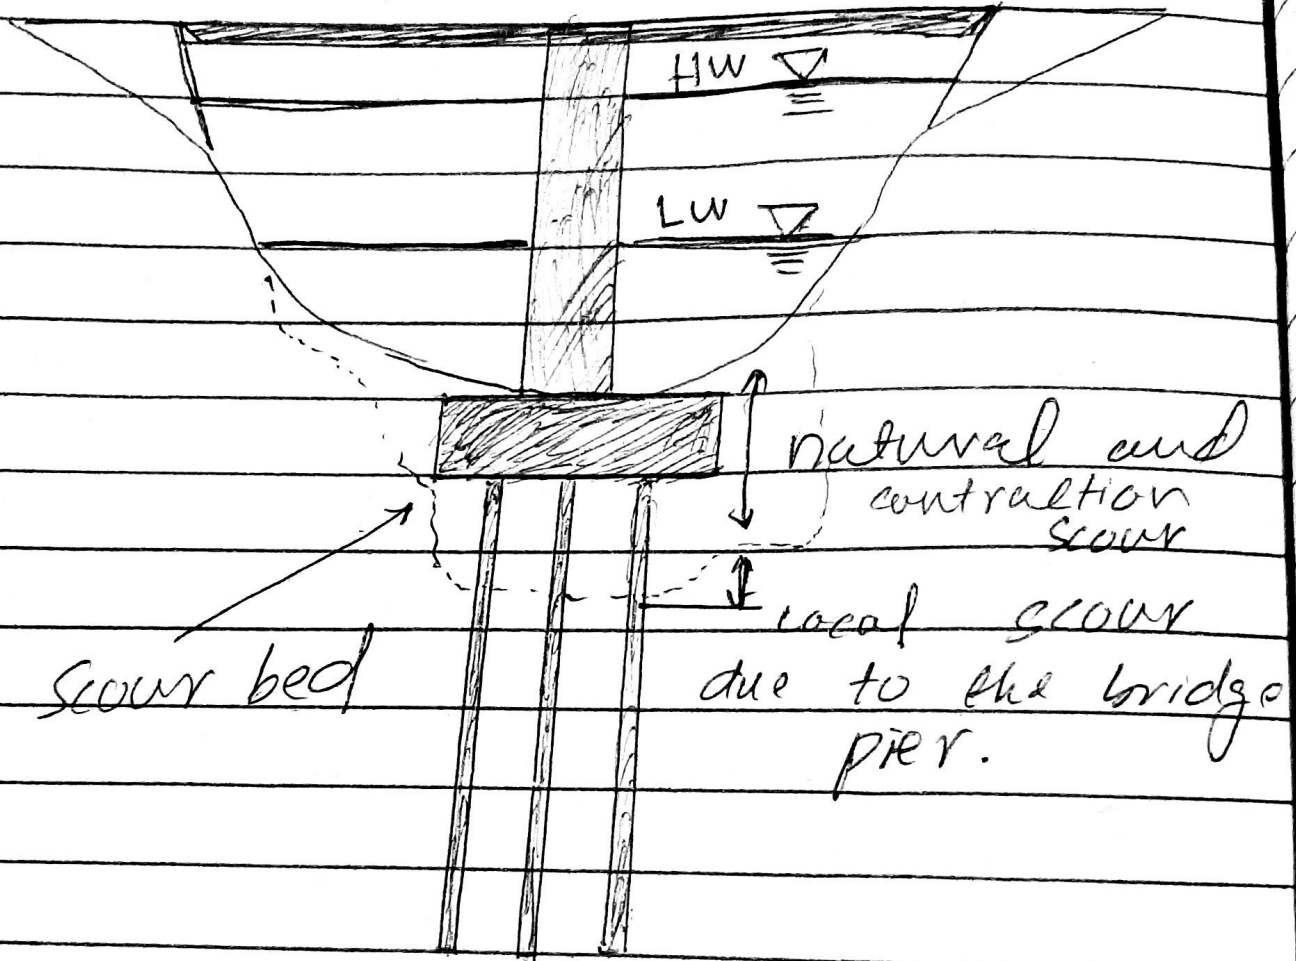 HW
LW
natural and
contraction
scour
local scour
due to the bridge
pier.
scour bed